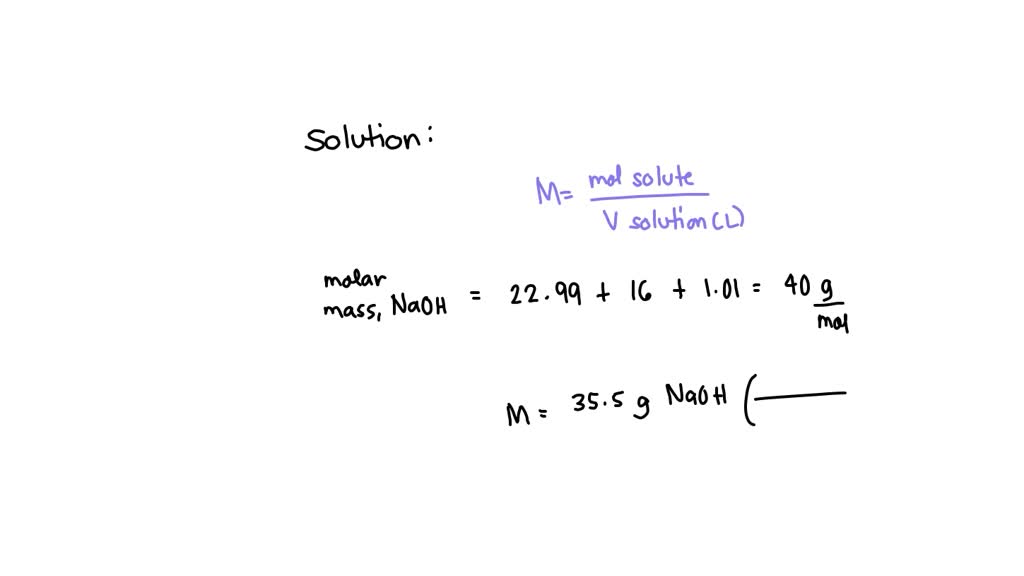 Solution:
M= mol solute
V solution (L)
molar
mass, NaOH = 22.99 + 16 + 1.01 = 40 g
mol
M = 35.5 g NaOH (